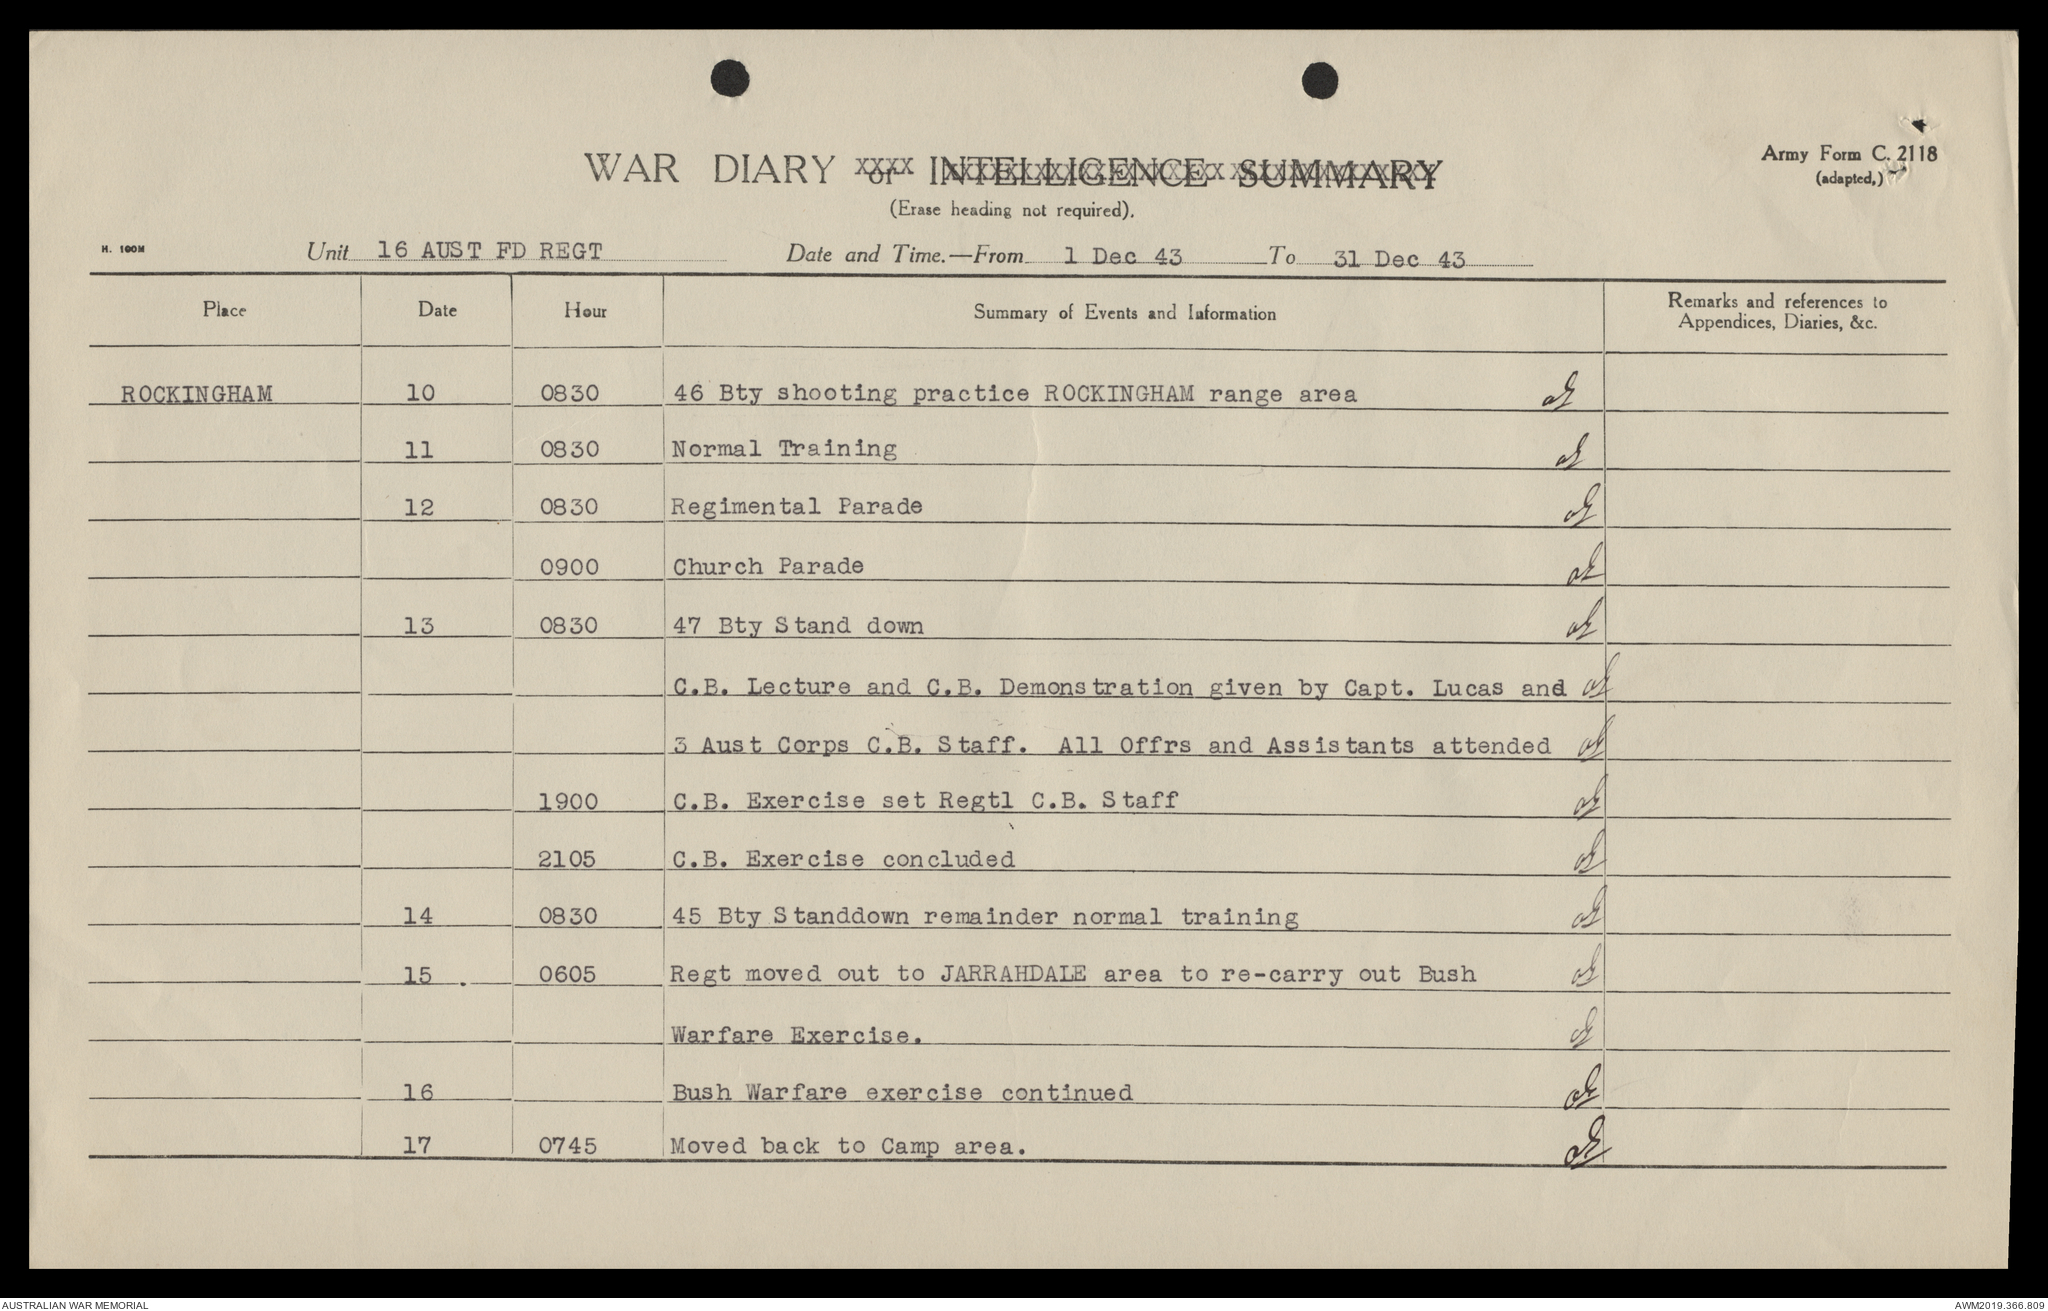 Army Form C. 2118
(adapted.)
WAR DIARY or INTELLIGENCE SUMMARY
(Erase heading not required).
H. 100M
Unit 16 AUST FD REGT Date and Time.—From 1 Dec 43 To 31 Dec 43
Place Date Hour Summary of Events and Information Remarks and references to
Appendices, Diaries, &c.
ROCKINGHAM 10 0830 46 Bty shooting practice ROCKINGHAM range area
11 0830 Normal Training
12 0830 Regimental Parade
0900 Church Parade
13 0830 47 Bty Stand down
C.B. Lecture and C.B. Demonstration given by Capt. Lucas and
3 Aust Corps C.B. Staff. All Offrs and Assistants attended
1900 C.B. Exercise set Regtl C.B. Staff
2105 C.B. Exercise concluded
14 0830 45 Bty Standdown remainder normal training
15 . 0605 Regt moved out to JARRAHDALE area to re-carry out Bush
Warfare Exercise.
16 Bush Warfare exercise continued
17 0745 Moved back to Camp area.
AUSTRALIAN WAR MEMORIAL AWM2019.366.809